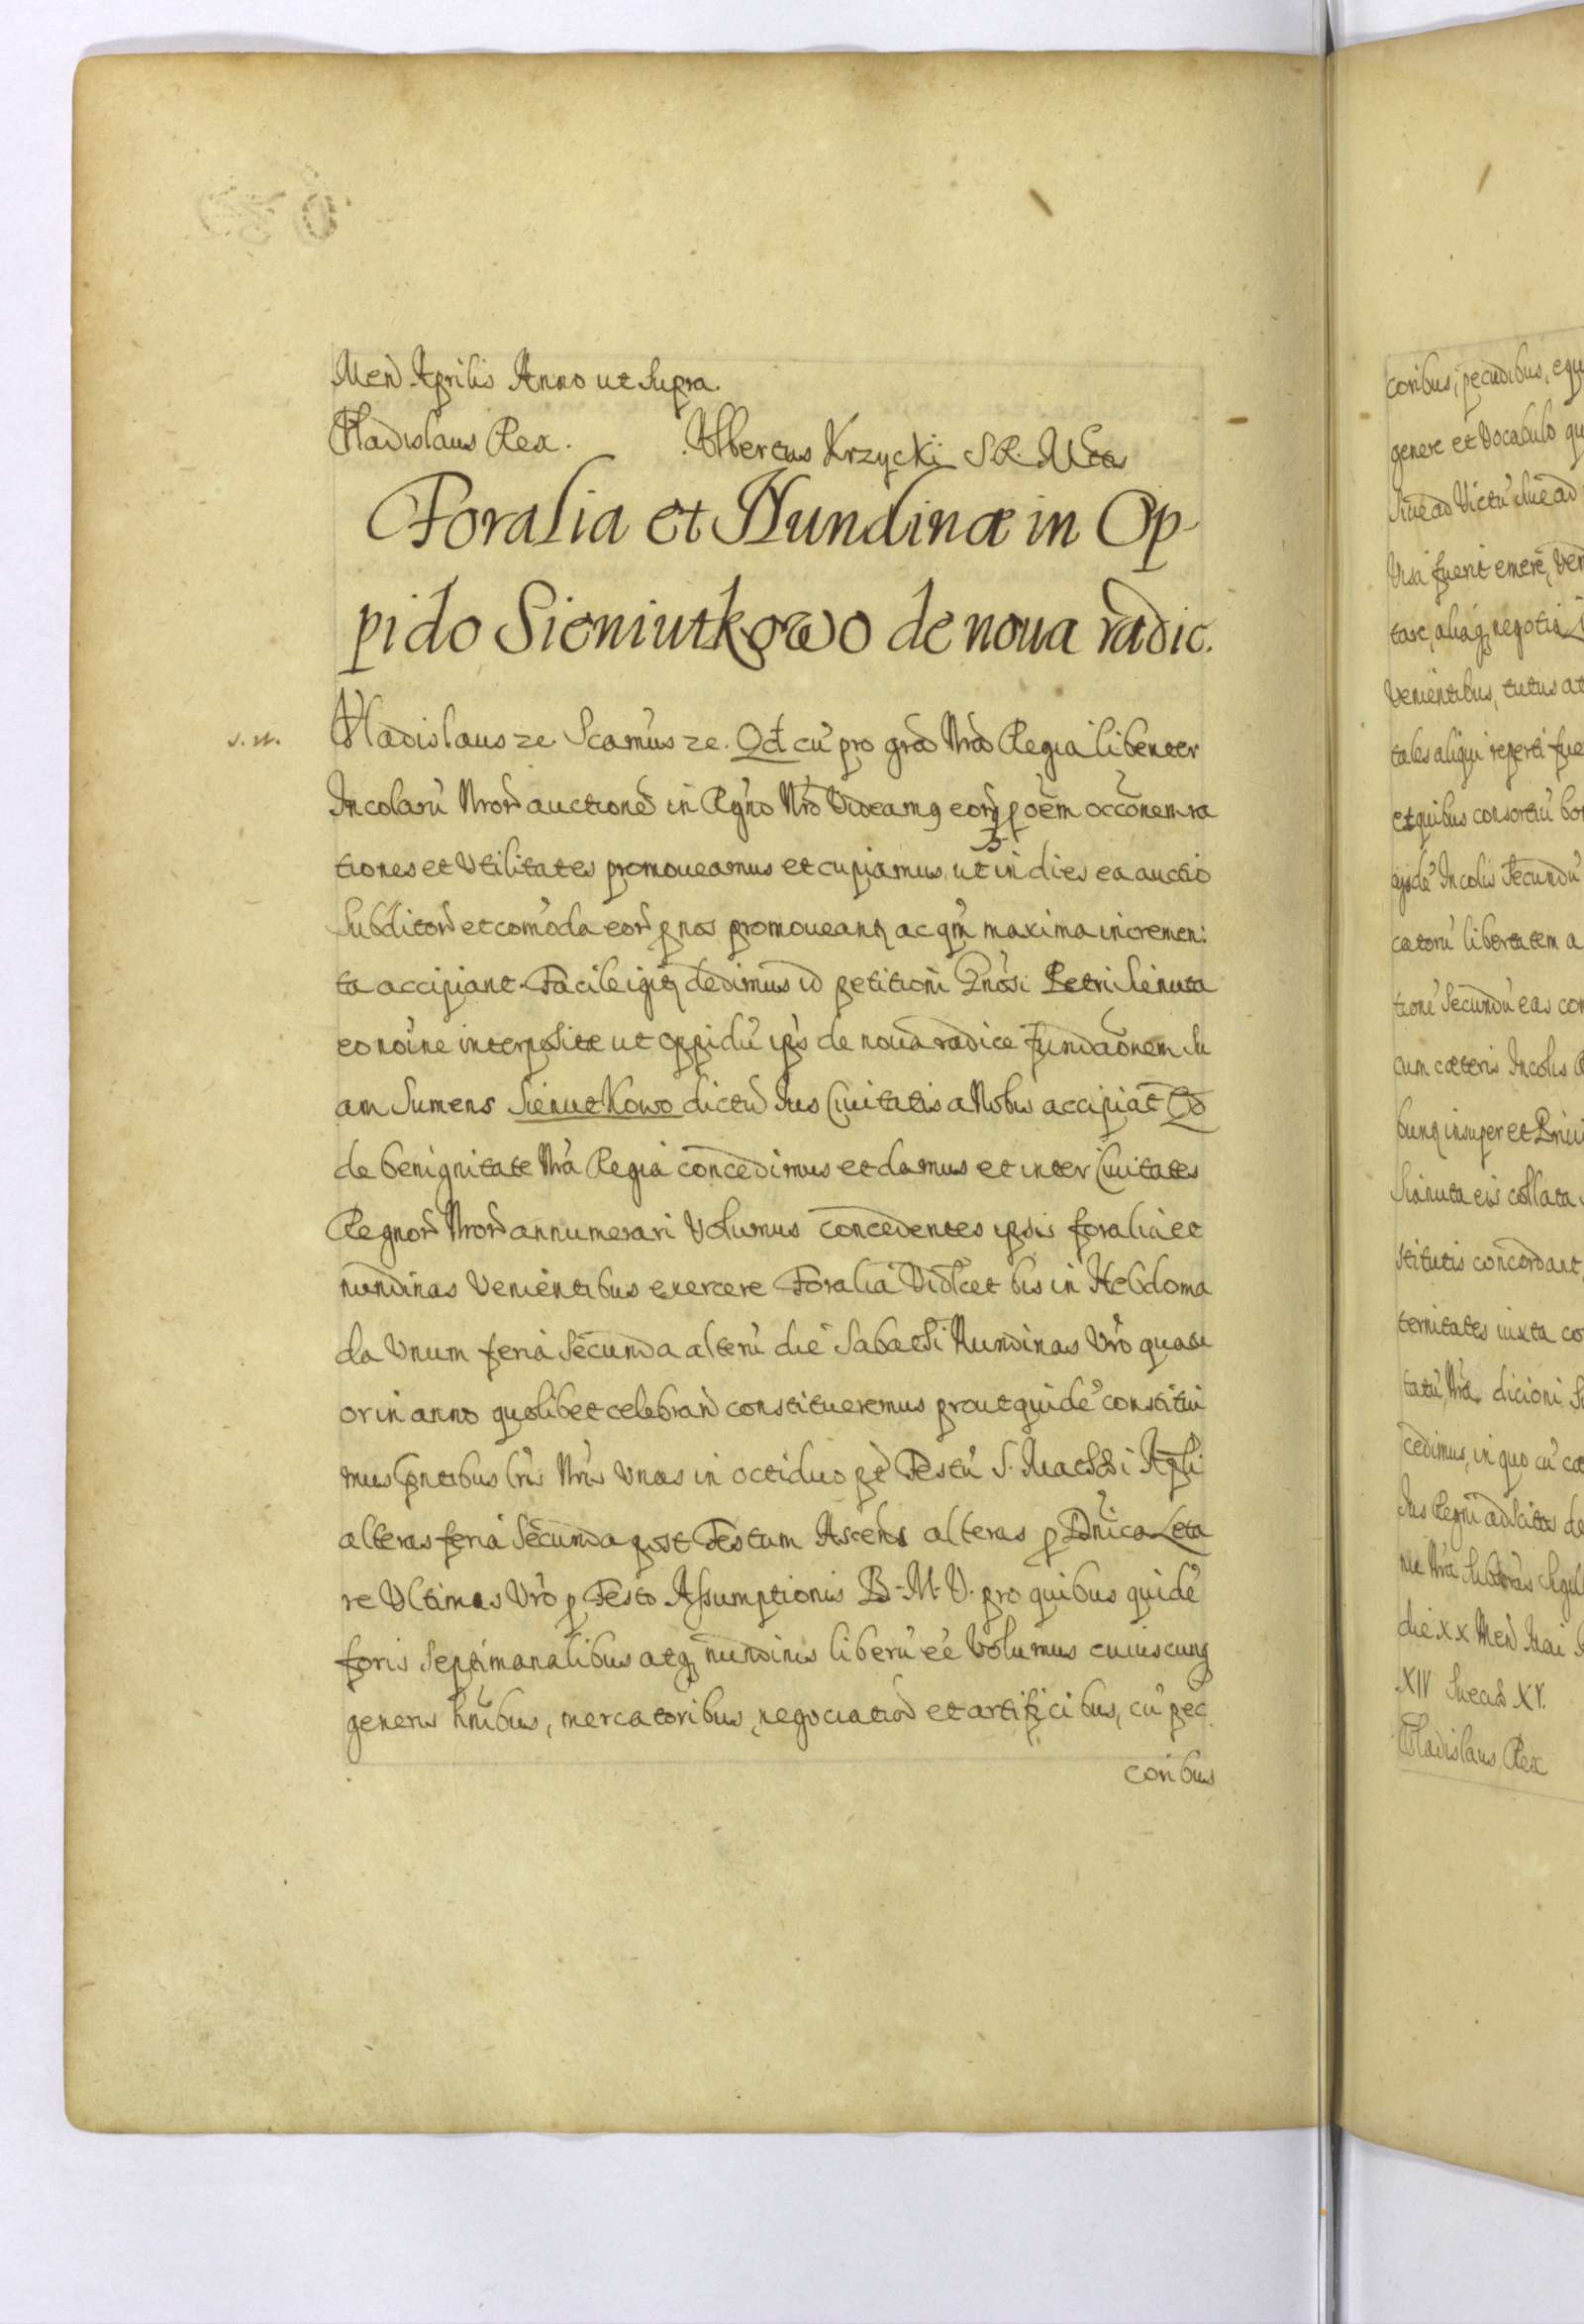 Mens̄ Aprilis Anno ut Supra.
Vladislaus Rex. Albertus Krzycki S R. Mtis
Foralia et Nundinæ in Op-
pido Sieniutkowo de noua radic.
s. n. Vladislaus ze. Scamus ze. Qd cū pro grāo Nrāo Regia libenter
Incolarū Nror auctioned in Regno Nrō Videamq eorq p oem occonem ra
tiones et Vtilitates promoueamus et cupiamus, ut in dies ea auctio
Subditor et comoda eor p nos promoueant ac qm maxima incremen:
ta accipiant. Facile igit dedimus id petitioni Gnosi Petri Sienuta
eo noine interposite ut oppidū ips de noua radice fundaonem su
am Sumens Sienutkowo dictu Ius Ciuitatis a Nobis accipiat Qd
de benignitate Nrā Regia concedimus et damus et inter Ciuitates
Regnor Nror annumerari Volumus concedentes ipsis foralia et
nundinas Venientibus exercere Foralia Vidlcet bis in Hebdoma
da Vnum feria Secunda alterū die Sabathi Nundinas Vrō quatu
or in anno quolibet celebran constitueremus prout quide constitui
mus pntibus lris Nris Vnas in octiduo pt Festū S. Mathæi Apli
alteras feria Secunda post Festum Ascens alteras p Dnica Leta
re Vltimas Vrō p Festo Assumptionis B. M. V. pro quibus quide
foris Septimanalibus atq nundinis liberū ee Volumus cuiuscunq
generis hnibus, mercatoribus, negociatio et artificibus, cū pec
coribus
coribus, pecudibus, equ
genere et Vocabulo qu
Siue ad Victū Siue ad
Visa fuerit emere, Ven
tare, aliaq negotia
Venientibus, tutus at
tales aliqui reperti fue
et quibus consortiū bo
ejsde Incolis Secundū
catorū libertatem a
tione Secundū eas con
cum cæteris Incolis
bunt insuper et Priui
Sianuta eis collata
stitutis concordant,
ternitates iuxta co
tatū Nræ dicioni S
cedimus, in quo cū cæ
Ius Regni adscitos de
nu Nra Subscris Sigil
die xx Mens Mai
XIV Sueciæ XV.
Vladislaus Rex